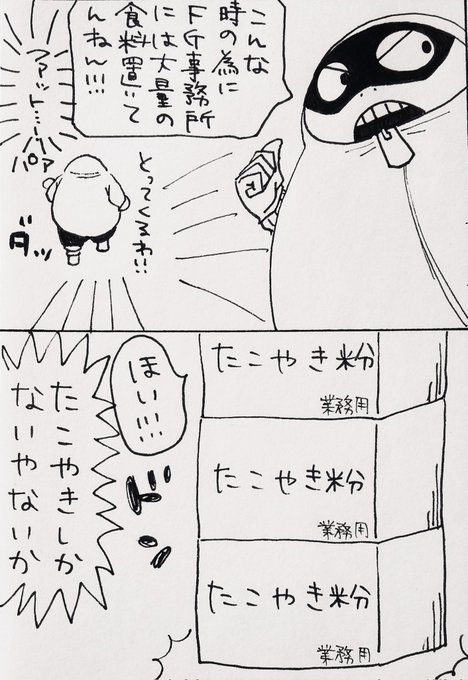 こんな
時の為に
FG事務所
には大量の
食料置いて
んねん!!!
ファット…!!
パァ
とってくるわ!!
ダッ
ほい!!!
ドン
たこやき粉
業務用
たこやき粉
業務用
たこやき粉
業務用
たこやきしか
ないやないか